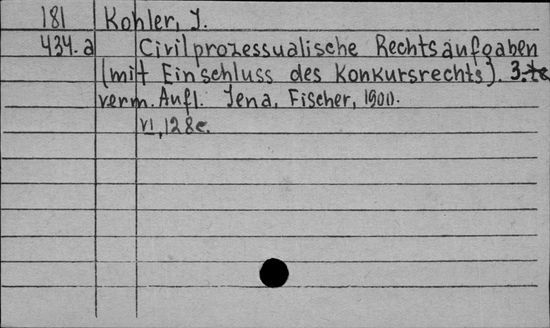 181 Kohler, J.
434.a Civilprozessualische Rechtsaufgaben
(mit Einschluss des Konkursrechts). 3.te
verm. Aufl. Jena, Fischer, 1900.
VI, 128 c.